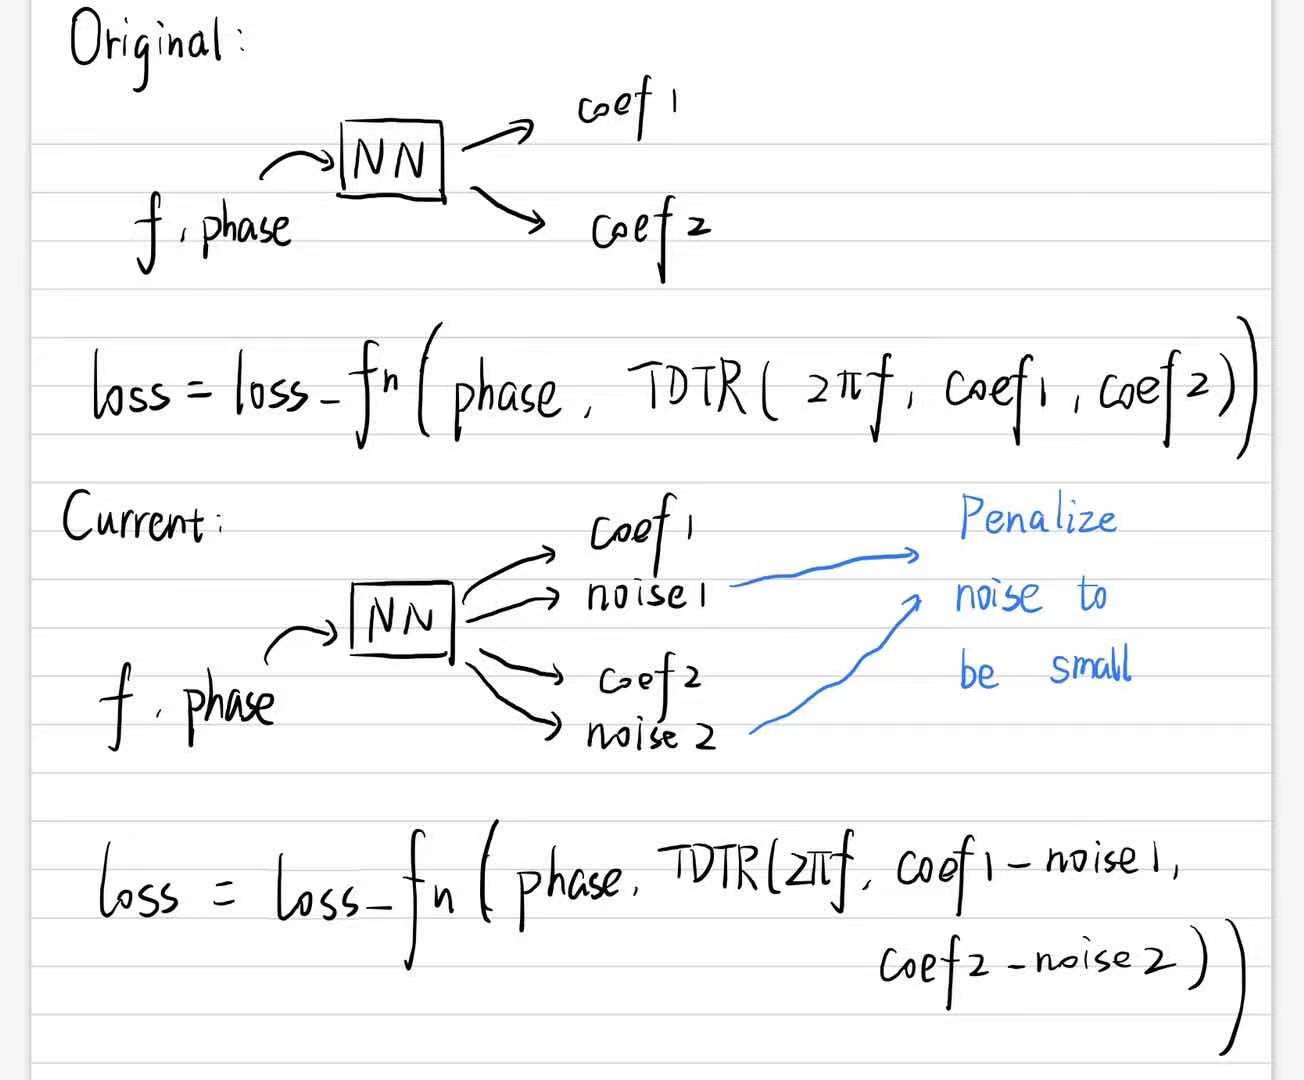 Original:
coef 1
NN
f, phase
coef 2
loss = loss_fn(phase, TDTR(2πf, coef1, coef2))
Current:
coef 1
Penalize
noise 1
noise to
NN
coef 2
be small
f, phase
noise 2
loss = loss_fn(phase, TDTR(2πf, coef1 - noise1,
coef2 - noise2))